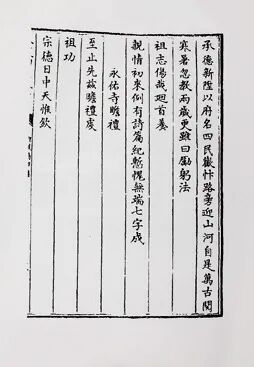 承德新陞以府名四民歡忭路旁迎山河自是萬古閱
寒暑忽教兩歲更雖曰勵躬法
祖志傷哉迴首慕
親情初來例有詩篇紀慙愧無端七字成
永佑寺瞻禮
至止先玆瞻禮虔
祖功
宗德日中天惟欽